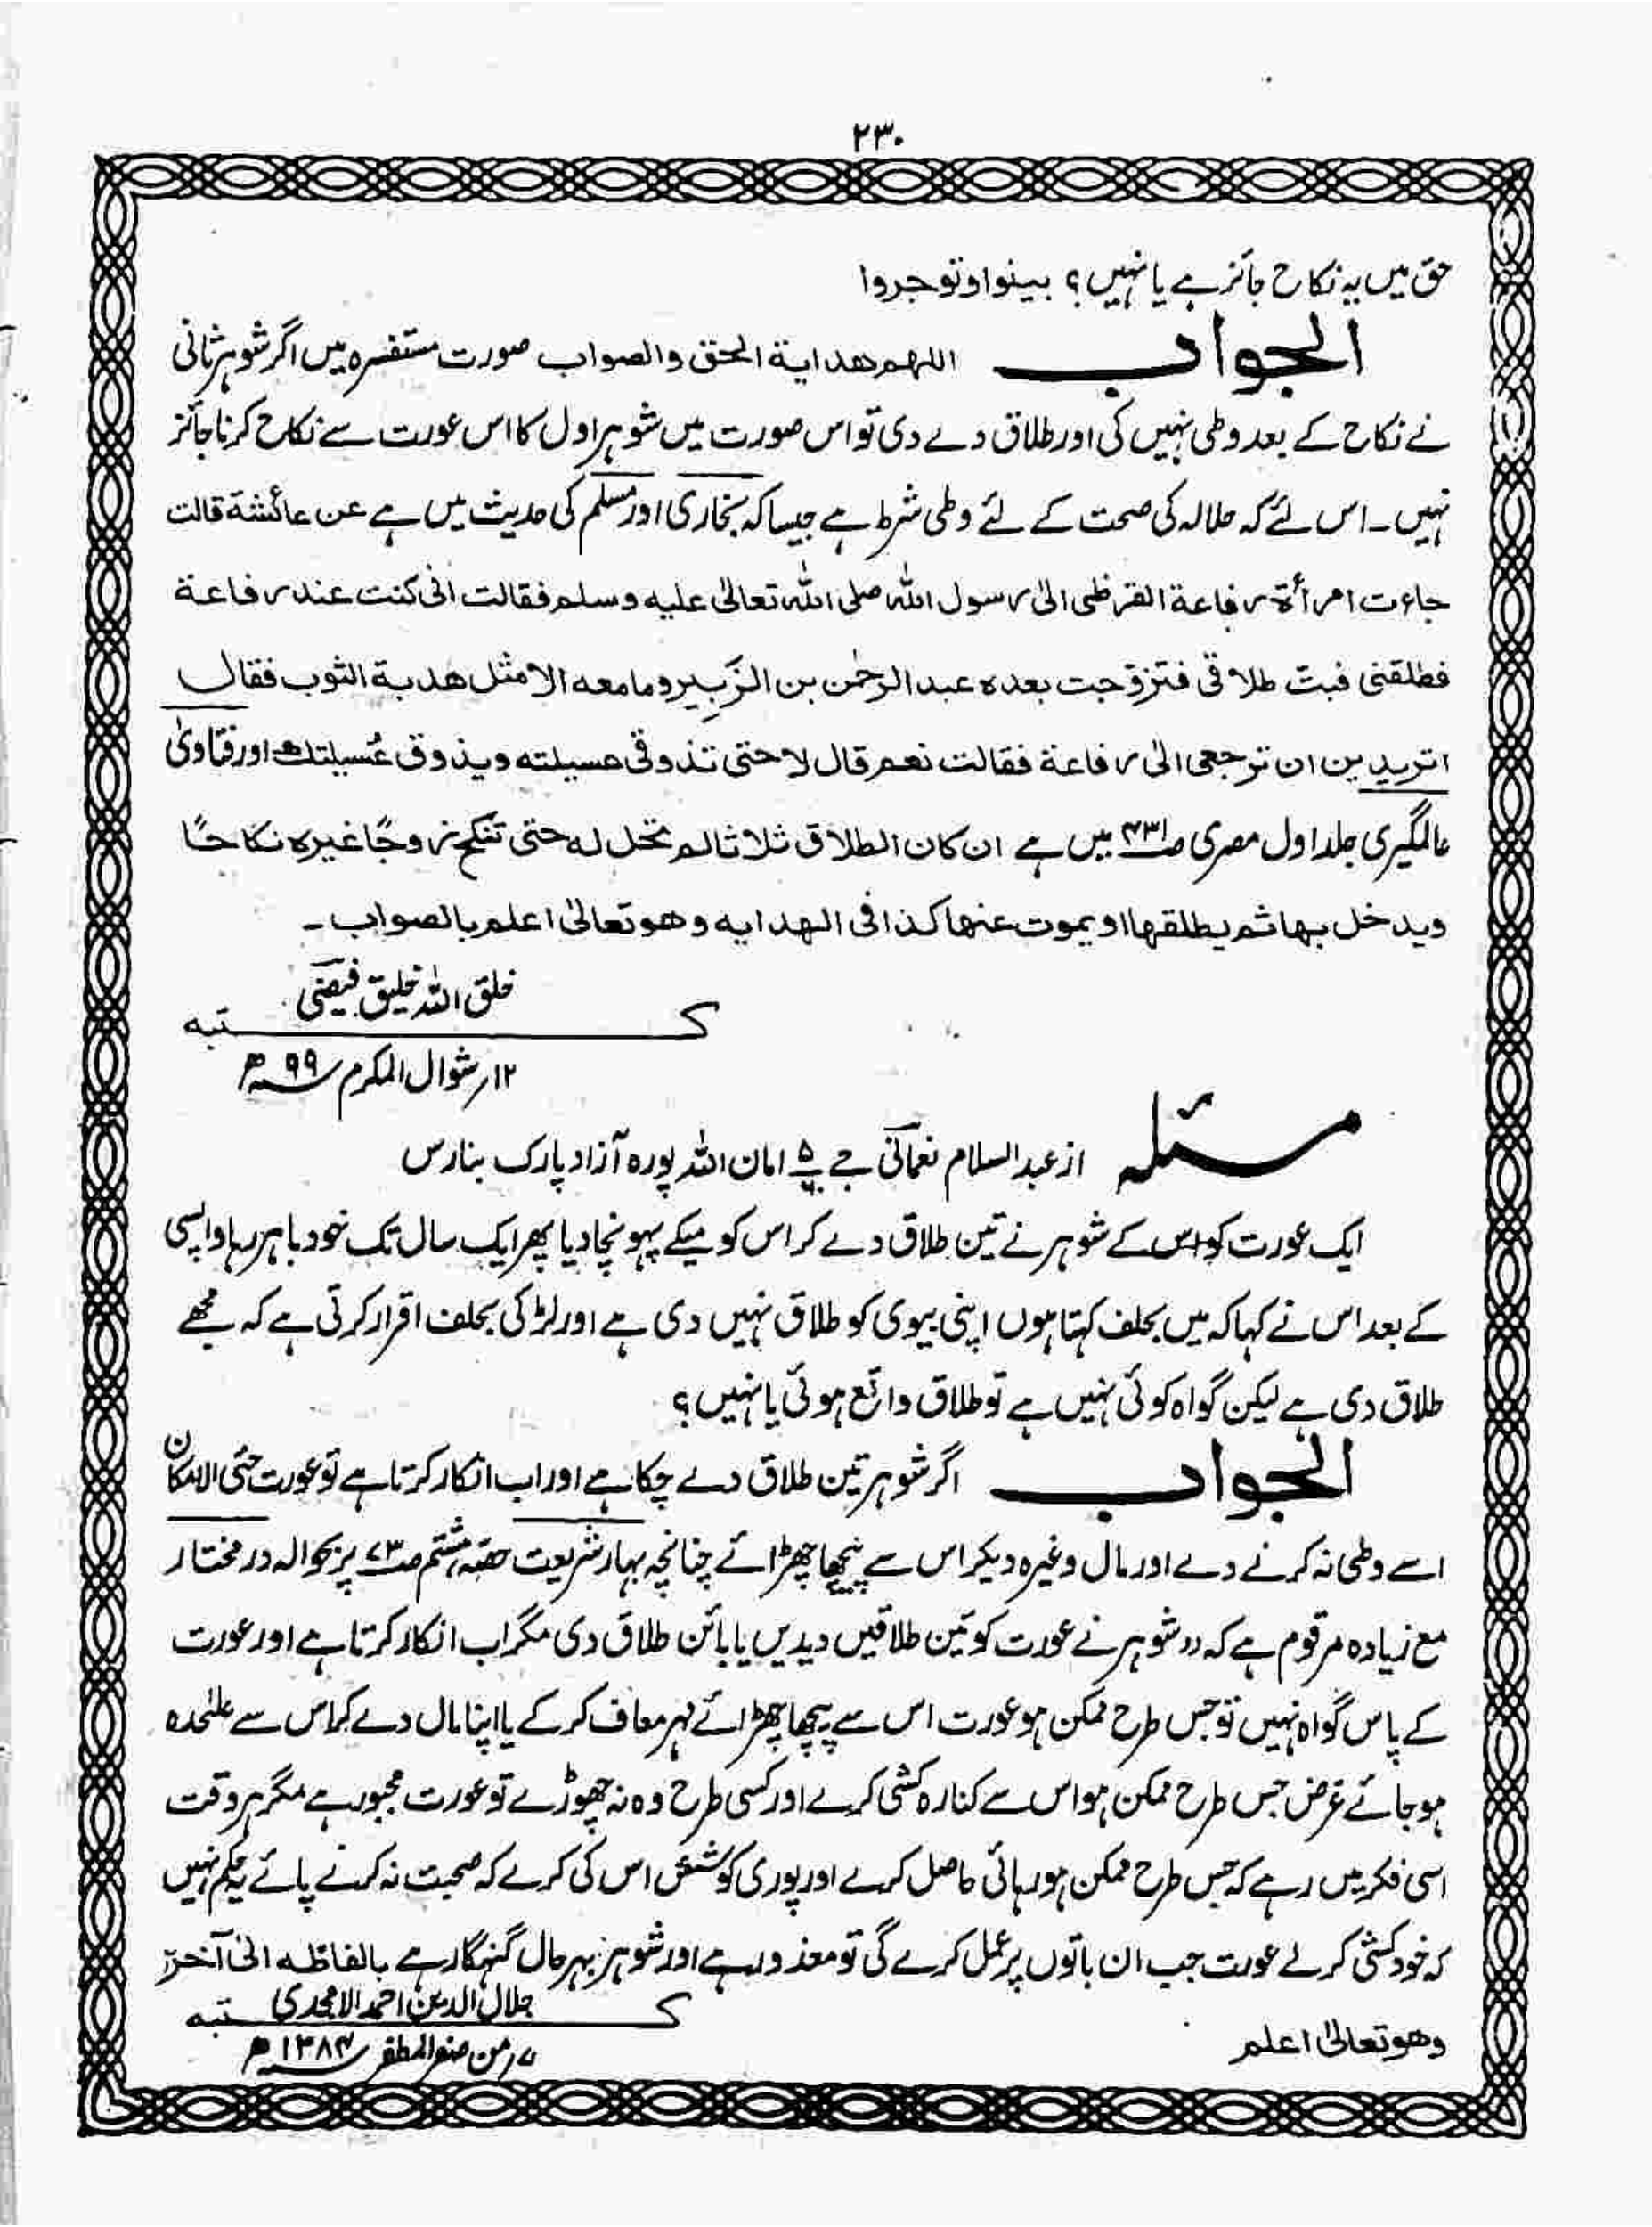 ۲۳۰
حق میں یہ نکاح جائز ہے یا نہیں؟ بینوا وتوجروا
الجواب اللھم ھدایة الحق والصواب صورت مستفسرہ میں اگر شوہر ثانی
نے نکاح کے بعد وطی نہیں کی اور طلاق دے دی تو اس صورت میں شوہر اول کا اس عورت سے نکاح کرنا جائز
نہیں۔ اس لئے کہ حلالہ کی صحت کے لئے وطی شرط ہے جیسا کہ بخاری اور مسلم کی حدیث میں ہے عن عائشة قالت
جاءت امرأة رفاعة القرظی الیٰ رسول اللہ صلی اللہ تعالیٰ علیہ وسلم فقالت انی کنت عند رفاعة
فطلقنی فبتّ طلاقی فتزوّجت بعدہ عبد الرحمٰن بن الزَبِیر وما معہ الا مثل ھدبة الثوب فقال
اتریدین ان ترجعی الیٰ رفاعة فقالت نعم قال لا حتی تذوقی عسیلتہ ویذوق عُسیلتك اور فتاویٰ
عالمگیری جلد اول مصری ص۴۳۱ میں ہے ان کان الطلاق ثلاثا لم تحل لہ حتی تنکح زوجًا غیرہ نکاحًا
ویدخل بہا ثم یطلقہا او یموت عنہا کذا فی الہدایہ وھو تعالیٰ اعلم بالصواب۔
خلق اللہ خلیق فیضی
کتبہ
۱۲؍ شوال المکرم ۹۹ھ
مسئلہ از عبد السلام نعمانی جے امان اللہ پورہ آزاد پارک بنارس
ایک عورت کو اس کے شوہر نے تین طلاق دے کر اس کو میکے پہونچا دیا پھر ایک سال تک خود باہر رہا واپسی
کے بعد اس نے کہا کہ میں بحلف کہتا ہوں اپنی بیوی کو طلاق نہیں دی ہے اور لڑکی بحلف اقرار کرتی ہے کہ مجھے
طلاق دی ہے لیکن گواہ کوئی نہیں ہے تو طلاق واقع ہوئی یا نہیں؟
الجواب اگر شوہر تین طلاق دے چکا ہے اور اب انکار کرتا ہے تو عورت حتی الامکان
اسے وطی نہ کرنے دے اور مال وغیرہ دیکر اس سے پیچھا چھڑائے چنانچہ بہار شریعت حصہ ہشتم ص۷۳ پر بحوالہ در مختار
مع زیادہ مرقوم ہے کہ ،،شوہر نے عورت کو تین طلاقیں دیدیں یا بائن طلاق دی مگر اب انکار کرتا ہے اور عورت
کے پاس گواہ نہیں تو جس طرح ممکن ہو عورت اس سے پیچھا چھڑائے مہر معاف کر کے یا اپنا مال دے کر اس سے علٰحدہ
ہو جائے غرض جس طرح ممکن ہو اس سے کنارہ کشی کرے اور کسی طرح وہ نہ چھوڑے تو عورت مجبور ہے مگر ہر وقت
اسی فکر میں رہے کہ جس طرح ممکن ہو رہائی حاصل کرے اور پوری کوشش اس کی کرے کہ صحبت نہ کرنے پائے یہ حکم نہیں
کہ خودکشی کرلے عورت جب ان باتوں پر عمل کرے گی تو معذور ہے اور شوہر بہرحال گنہگار ہے بالفاظہ الیٰ آخرہ
وھو تعالیٰ اعلم
جلال الدین احمد الامجدی
کتبہ
۷؍ من صفر المظفر ۱۳۸۴ھ